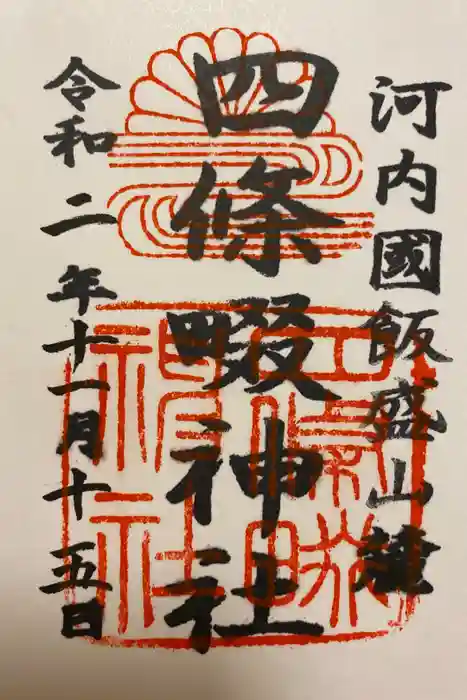 河内國飯盛山麓
四條畷神社
令和二年十一月十五日
四條畷神社